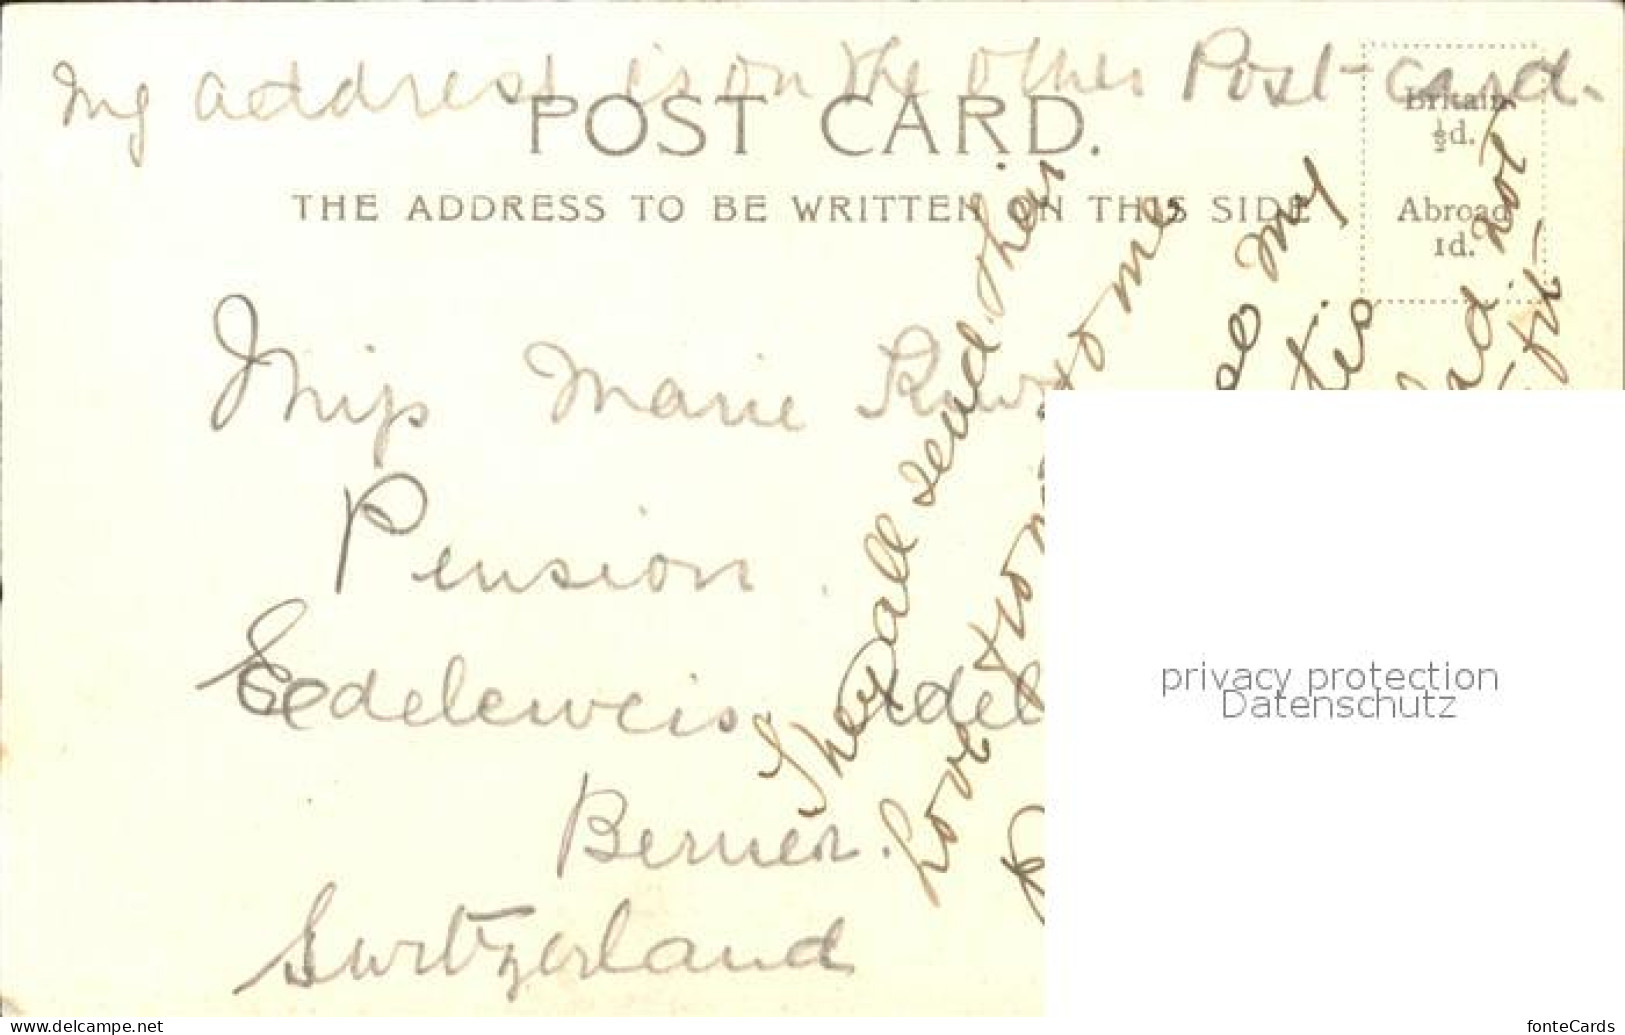 My address is on the other Post-card.
POST CARD.
Britain
½d.
Abroad
1d.
THE ADDRESS TO BE WRITTEN ON THIS SIDE
Miss Marie
Pension
Edelweis. Adel
Berner.
Switzerland
They all send their
love
to me
my
not
privacy protection
Datenschutz
www.delcampe.net
fonteCards